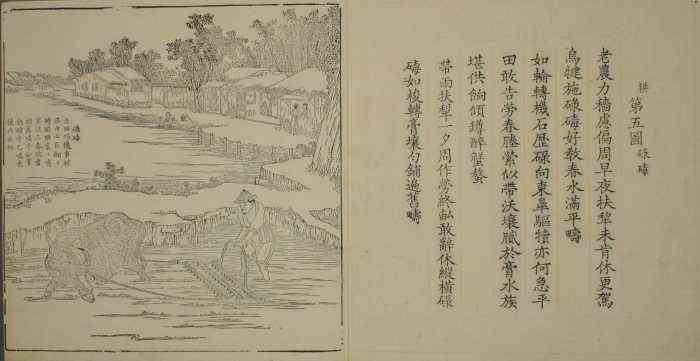 耕
第五圖 碌碡
老農力穡慮偏周早夜扶犂未肯休更駕
烏犍施碌碡好教春水滿平疇
如輪轉機石歷碌向東臯驅犢亦何急平
田敢告勞春塍縈似帶沃壤膩於膏水族
堪供餉傾罇醉蟹螯
帶雨扶犂一夕周作勞終畝敢辭休縱橫碌
碡如梭轉膏壤勻鋪遍舊疇
碌碡